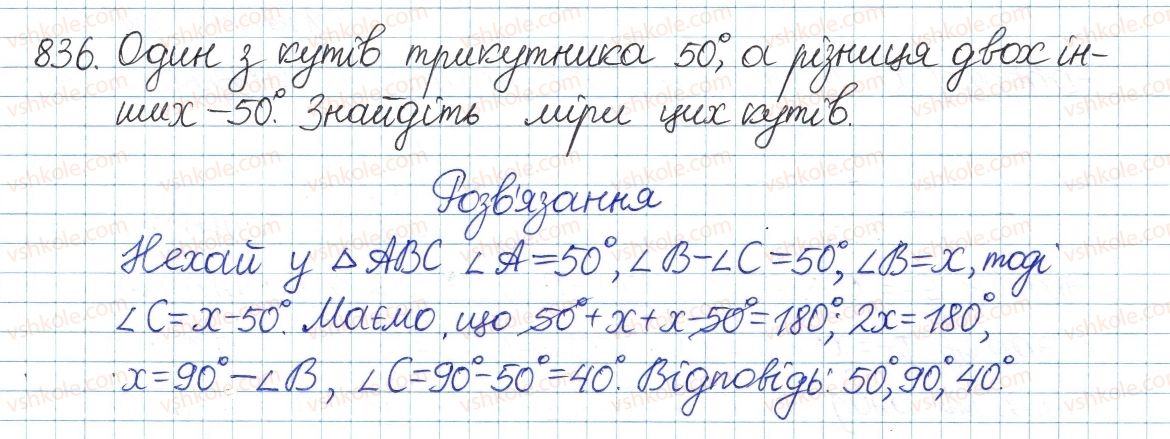 836. Один з кутів трикутника 50°, а різниця двох ін-
ших – 50°. Знайдіть міри цих кутів.
Розв'язання
Нехай у △ABC ∠A=50°, ∠B-∠C=50°, ∠B=x, тоді
∠C=x-50°. Маємо, що 50°+x+x-50°=180°; 2x=180°,
x=90° – ∠B, ∠C=90°-50°=40°. Відповідь: 50°, 90°, 40°.